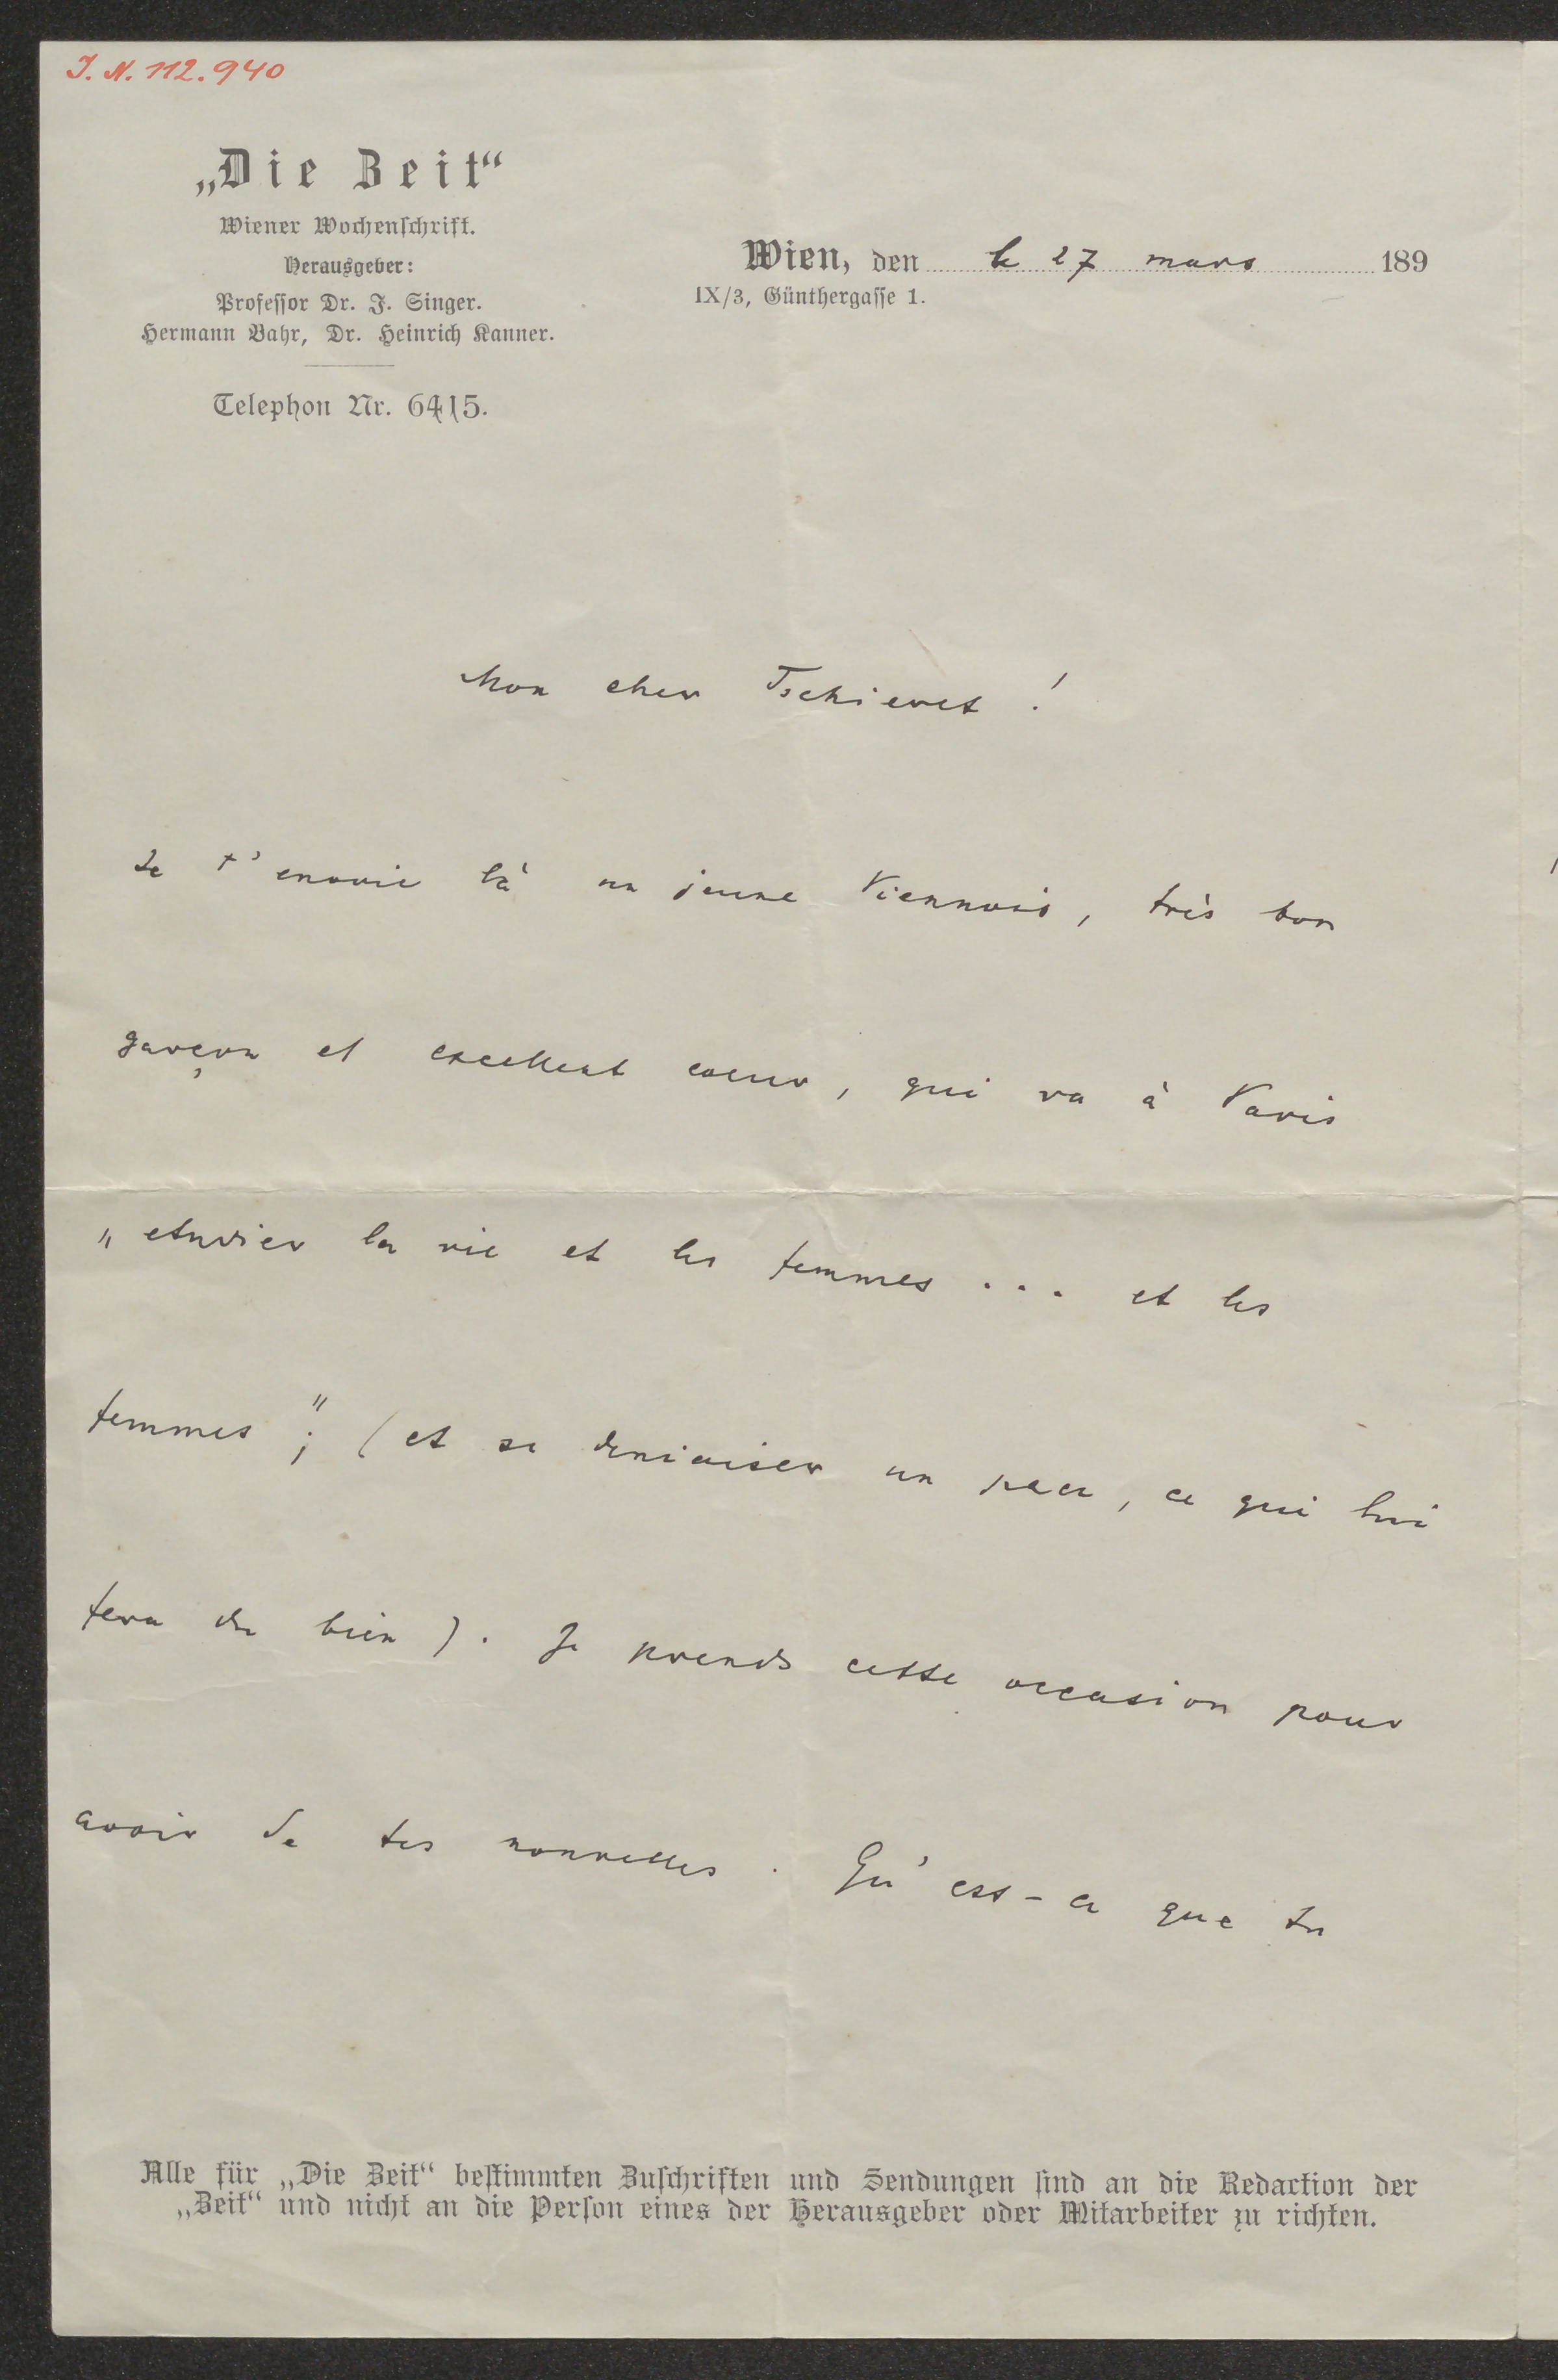 J. N. 112.940
„Die Zeit“
Wiener Wochenschrift.
Herausgeber:
Professor Dr. J. Singer.
Hermann Bahr, Dr. Heinrich Kanner.
Telephon Nr. 6415.
Wien, den le 27 mars 189
IX/3, Günthergasse 1.
Mon cher Tschieret !
Je t'envoie là un jeune Viennois, très bon
garçon et excellent coeur, qui va à Paris
„etudier la vie et les femmes ... et les
femmes"; (et se deniaiser un peu, ce qui lui
fera du bien). Je prends cette occasion pour
avoir de tes nouvelles. Qu'est-ce que tu
Alle für „Die Zeit“ bestimmten Zuschriften und Sendungen sind an die Redaction der
„Zeit“ und nicht an die Person eines der Herausgeber oder Mitarbeiter zu richten.